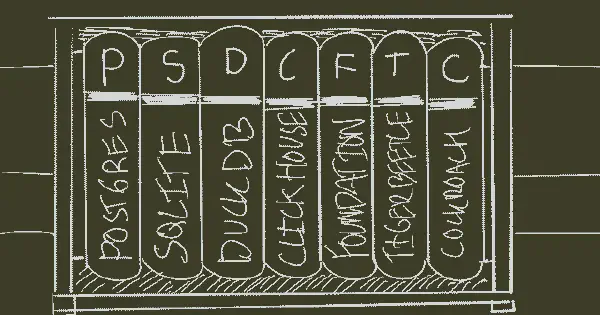 P
S
D
C
F
T
C
POSTGRES
SQLITE
DUCKDB
CLICKHOUSE
FOUNDATION
TIGERBEETLE
COCKROACH